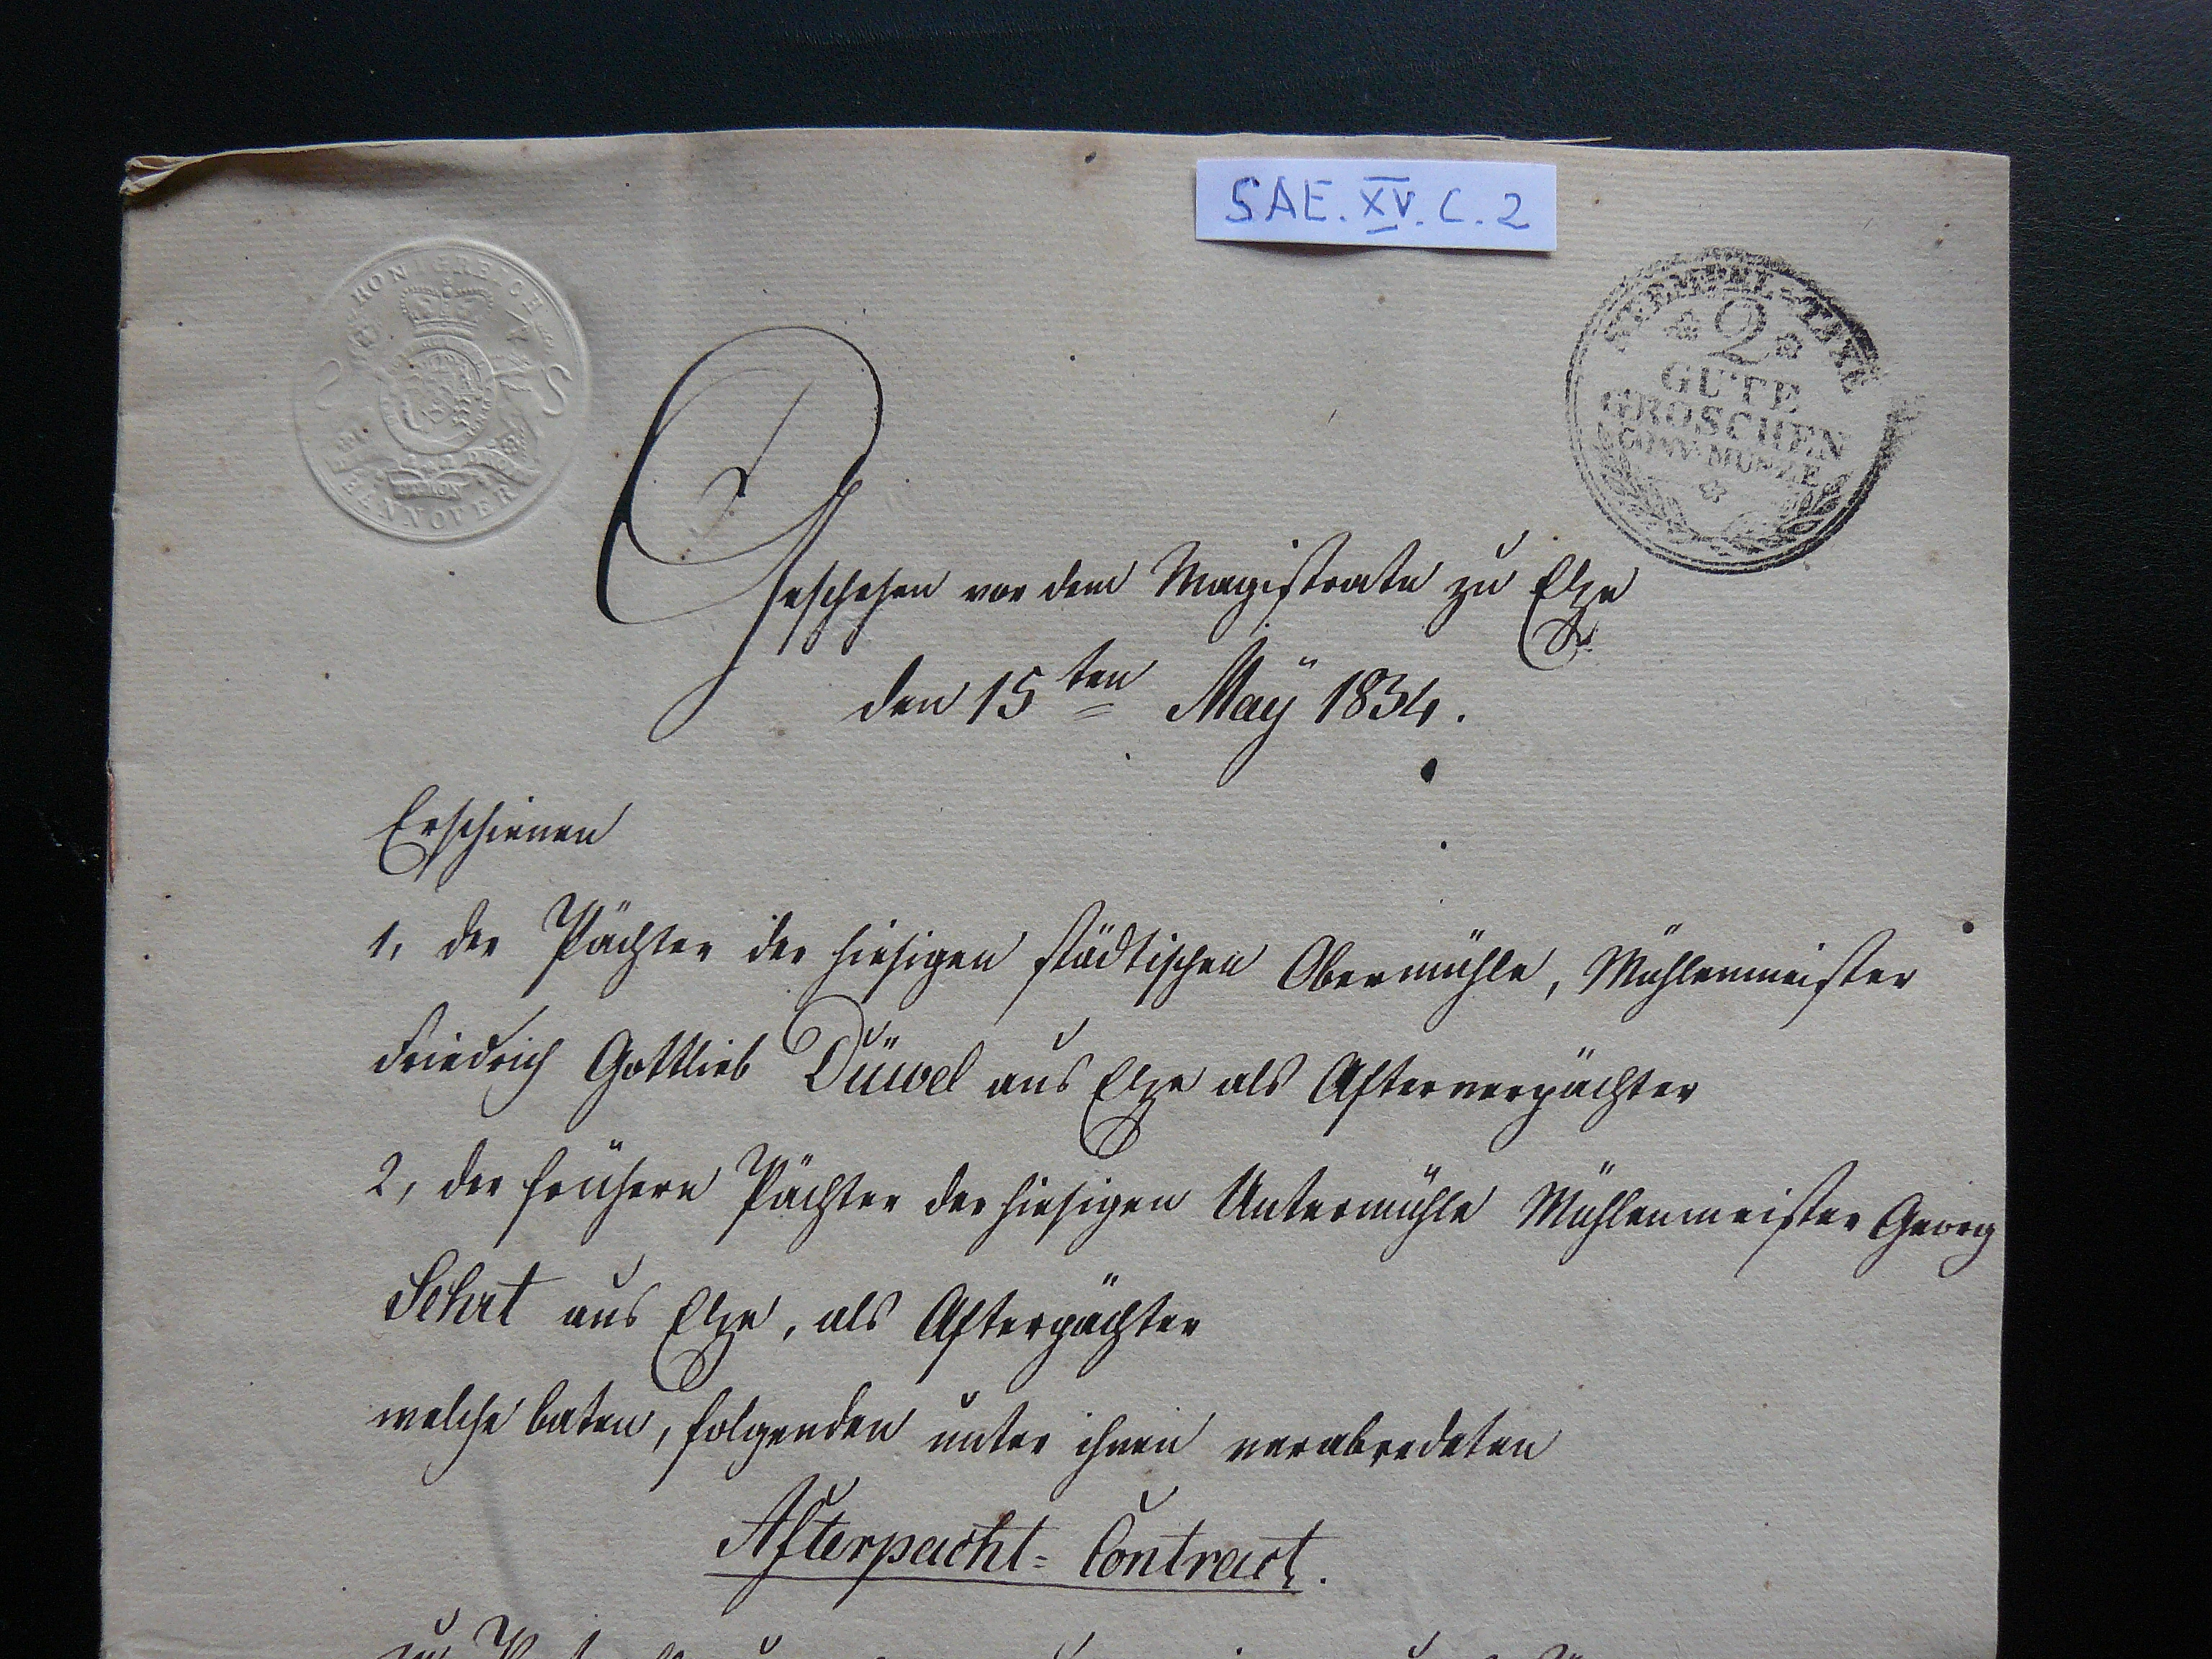 SAE. XV. C. 2
KÖNIGREICH
HANNOVER
STEMPEL-TAXE
2
GUTE
GROSCHEN
CONV. MÜNZE
Geschehen vor dem Magistrate zu Elze
den 15ten May 1834.
Erschienen
1, der Pächter der hiesigen städtischen Obermühle, Mühlenmeister
Friedrich Gottlieb Düwel aus Elze als Afterverpächter
2, der frühere Pächter der hiesigen Untermühle Mühlenmeister Georg
Sehrt aus Elze, als Afterpächter
welche baten, folgenden unter ihnen verabredeten
Afterpacht-Contract.